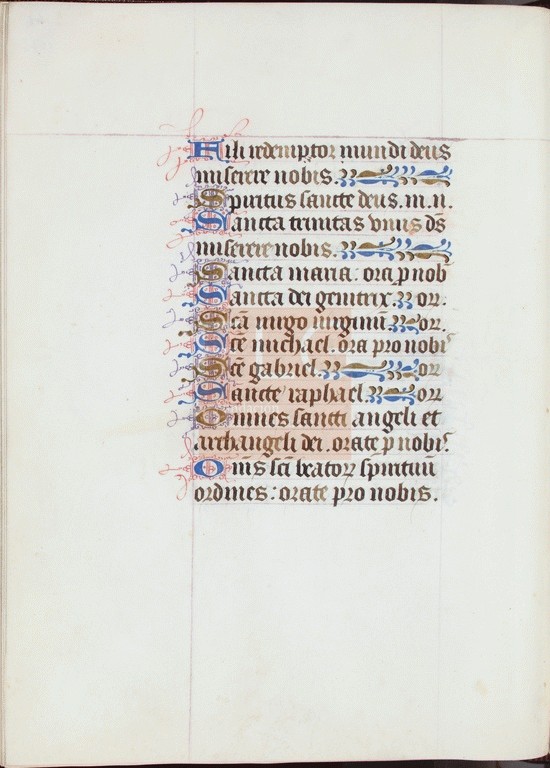 Fili redemptor mundi deus
miserere nobis.
Spiritus sancte deus. m. n.
Sancta trinitas vnus ds
miserere nobis.
Sancta maria: ora p nob
Sancta dei genitrix. or.
Sca virgo virginu. or.
Sce michael. ora pro nobis
Sce gabriel. or
Sancte raphael or
Omnes sancti angeli et
archangeli dei. orate p nobis.
Oms sci beatorꝝ spirituu
ordines: orate pro nobis.